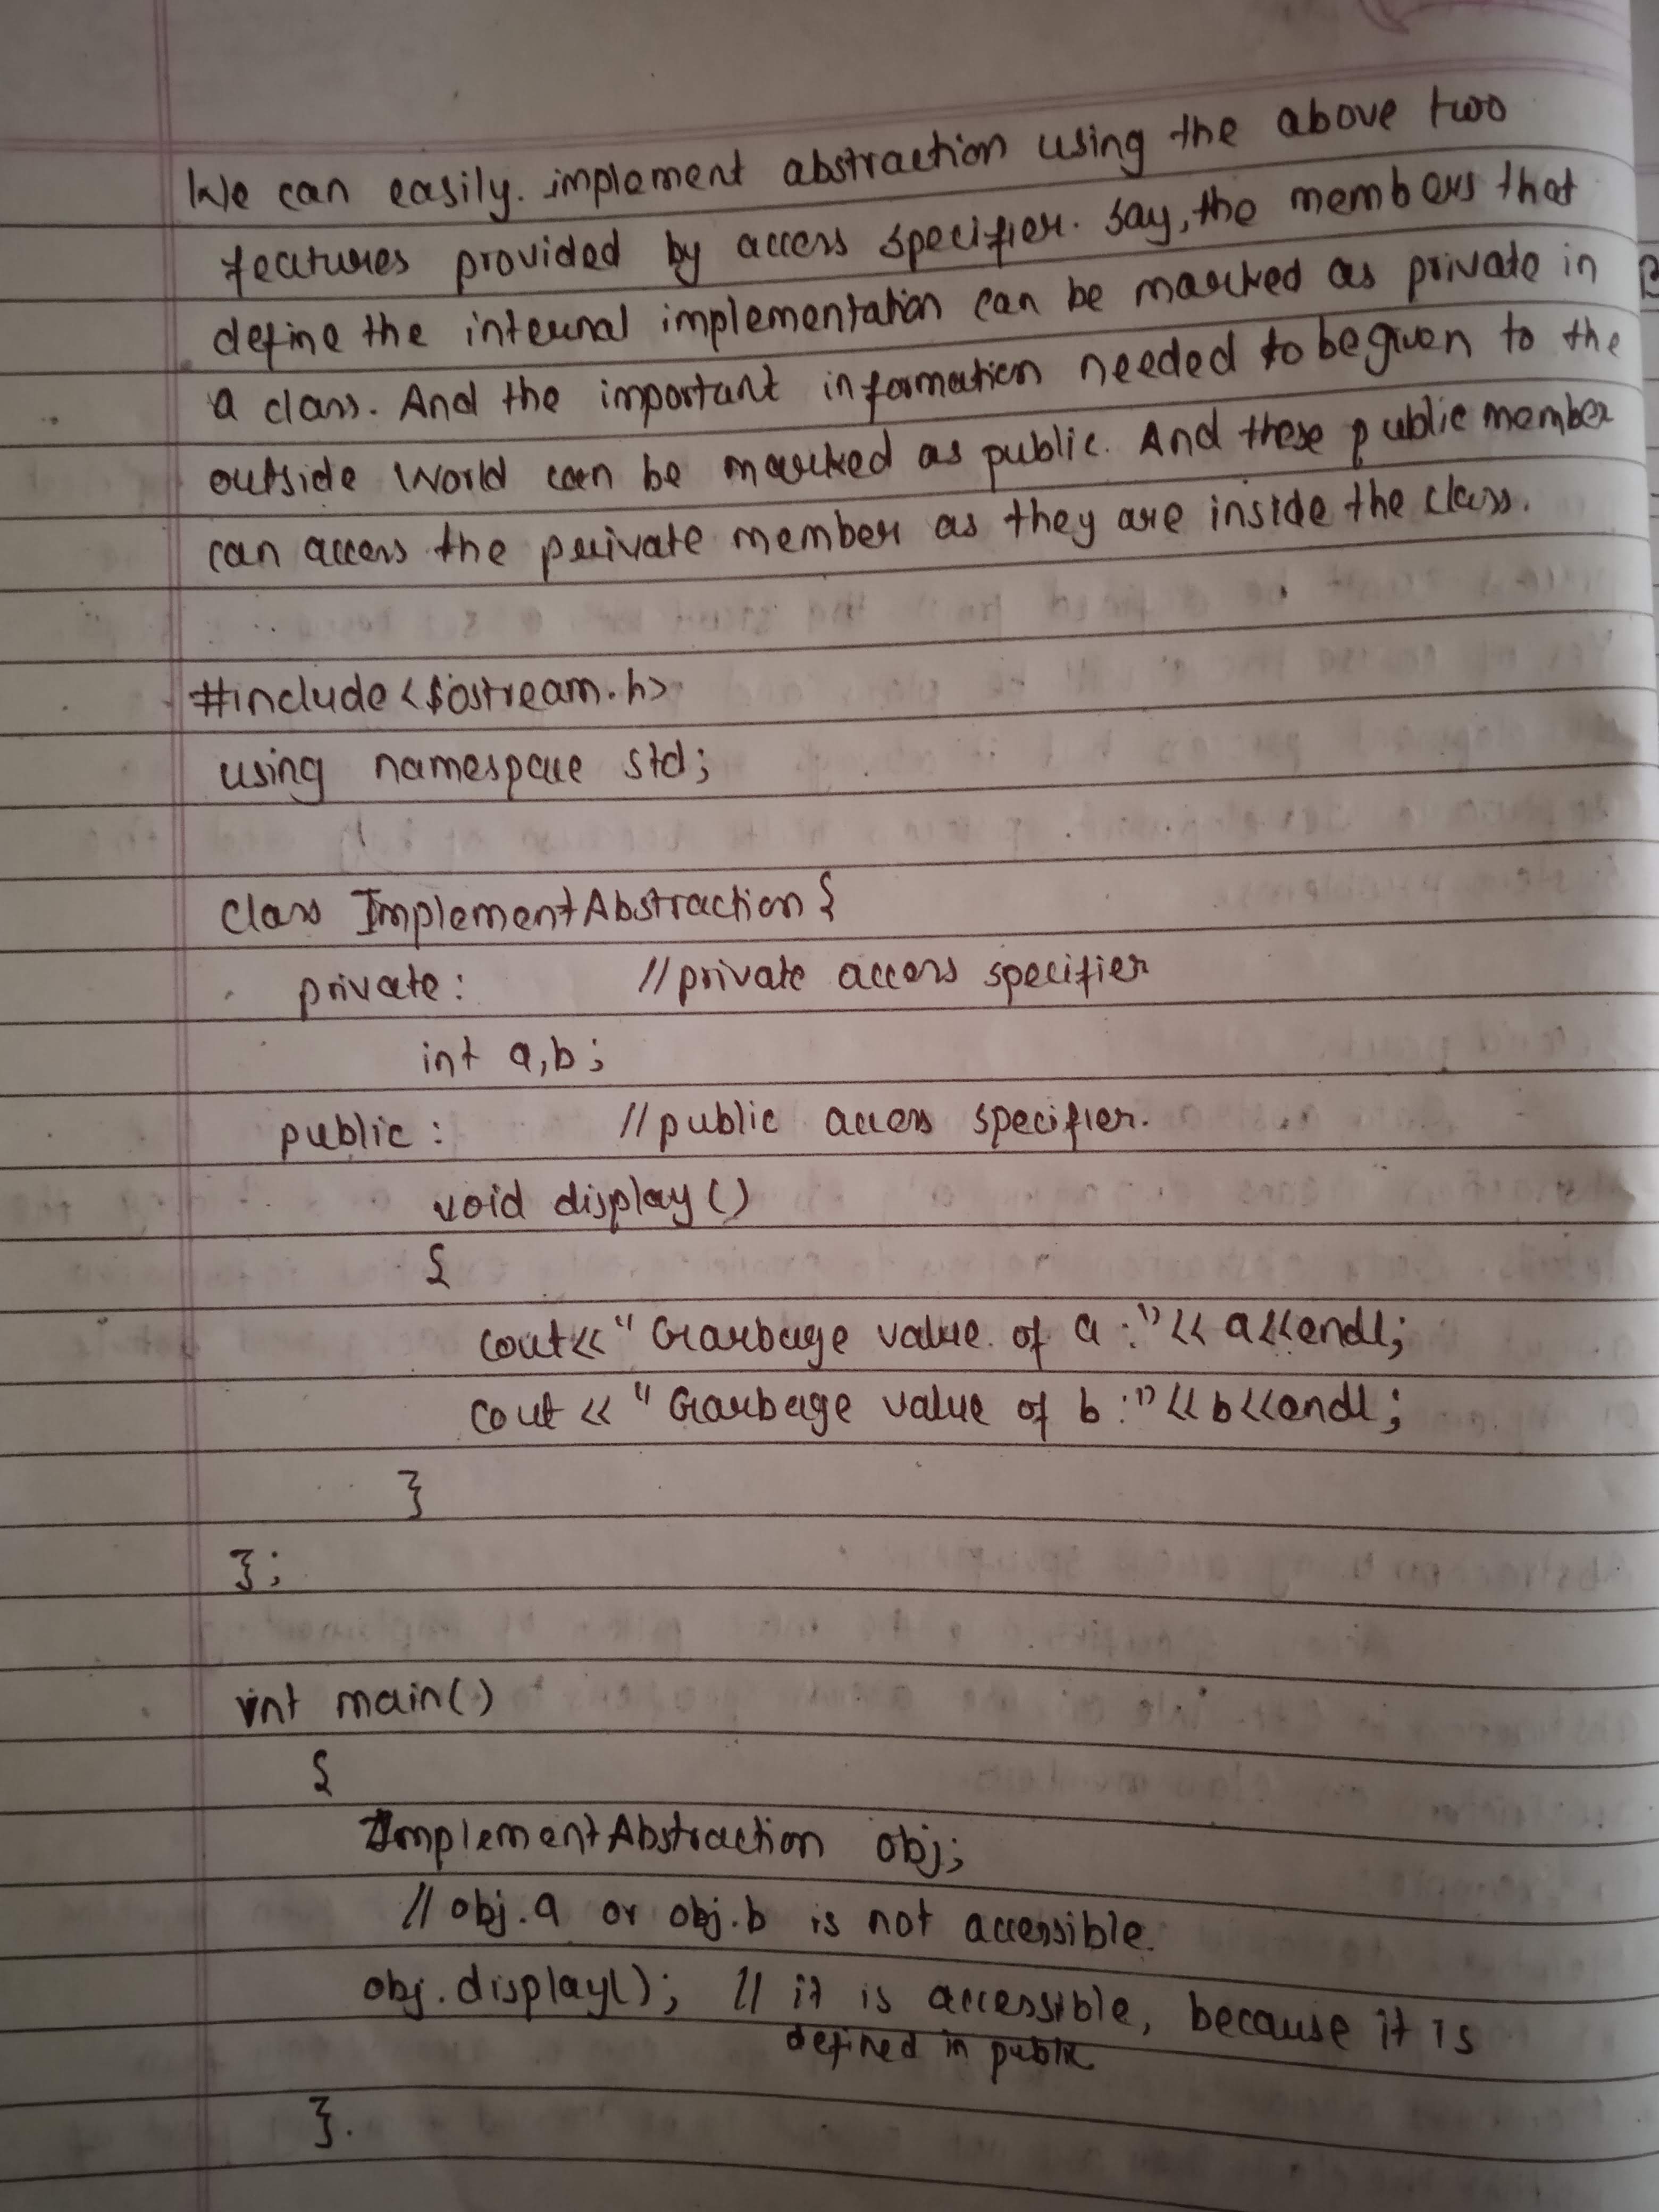 We can easily. implement abstraction using the above two
features provided by access specifier. Say, the members that
define the internal implementation can be marked as private in
a class. And the important information needed to be given to the
outside world can be marked as public. And these public member
can access the private member as they are inside the class.
#include<iostream.h>
using namespace std;
class ImplementAbstraction{
private: //private access specifier
int a,b;
public: //public access specifier.
void display()
{
cout<<"Garbage value of a:"<<a<<endl;
cout<<"Garbage value of b:"<<b<<endl;
}
};
int main()
{
ImplementAbstraction obj;
//obj.a or obj.b is not accessible.
obj.display(); // it is accessible, because it is
defined in public
}.